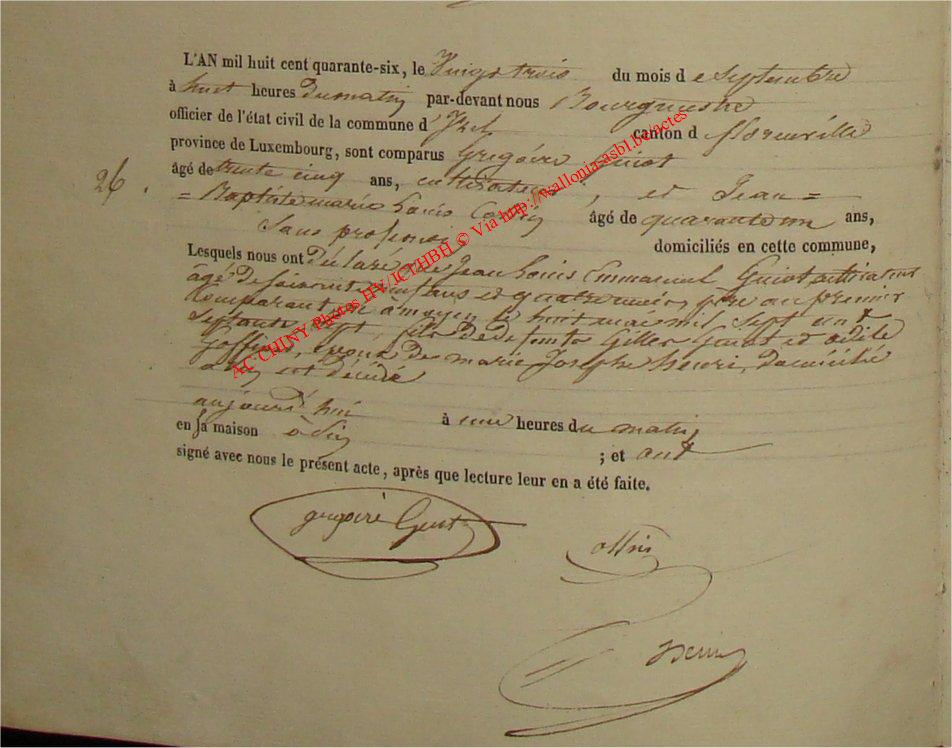 L'AN mil huit cent quarante-six, le Vingt trois du mois de Septembre
à huit heures du matin par-devant nous Bourgmestre
officier de l'état civil de la commune d' Izel canton d florenville
province de Luxembourg, sont comparus Grégoire Guiot
26.
âgé de trente cinq ans, cultivateur, et Jean=
=Baptiste marie Louis âgé de quarante un ans,
Sans profession domiciliés en cette commune,
Lesquels nous ont Déclaré que Jean Louis Emmanuel Guiot cultivateur
âgé De soixante neuf ans et quatre mois, père au premier
Comparant né à moyen le huit mai mil sept cent
Septante sept, fils De Defunts Gilles Guiot et odile
Goffinet, époux De marie Josephe henri, Domicilié
est Décédé
aujourd'hui à une heures du matin
en sa maison ; et ont
signé avec nous le présent acte, après que lecture leur en a été faite.
grégoire Guiot
AC CHINY Photos HV/ICTHBH © Via http://wallonia.asbl.be/actes